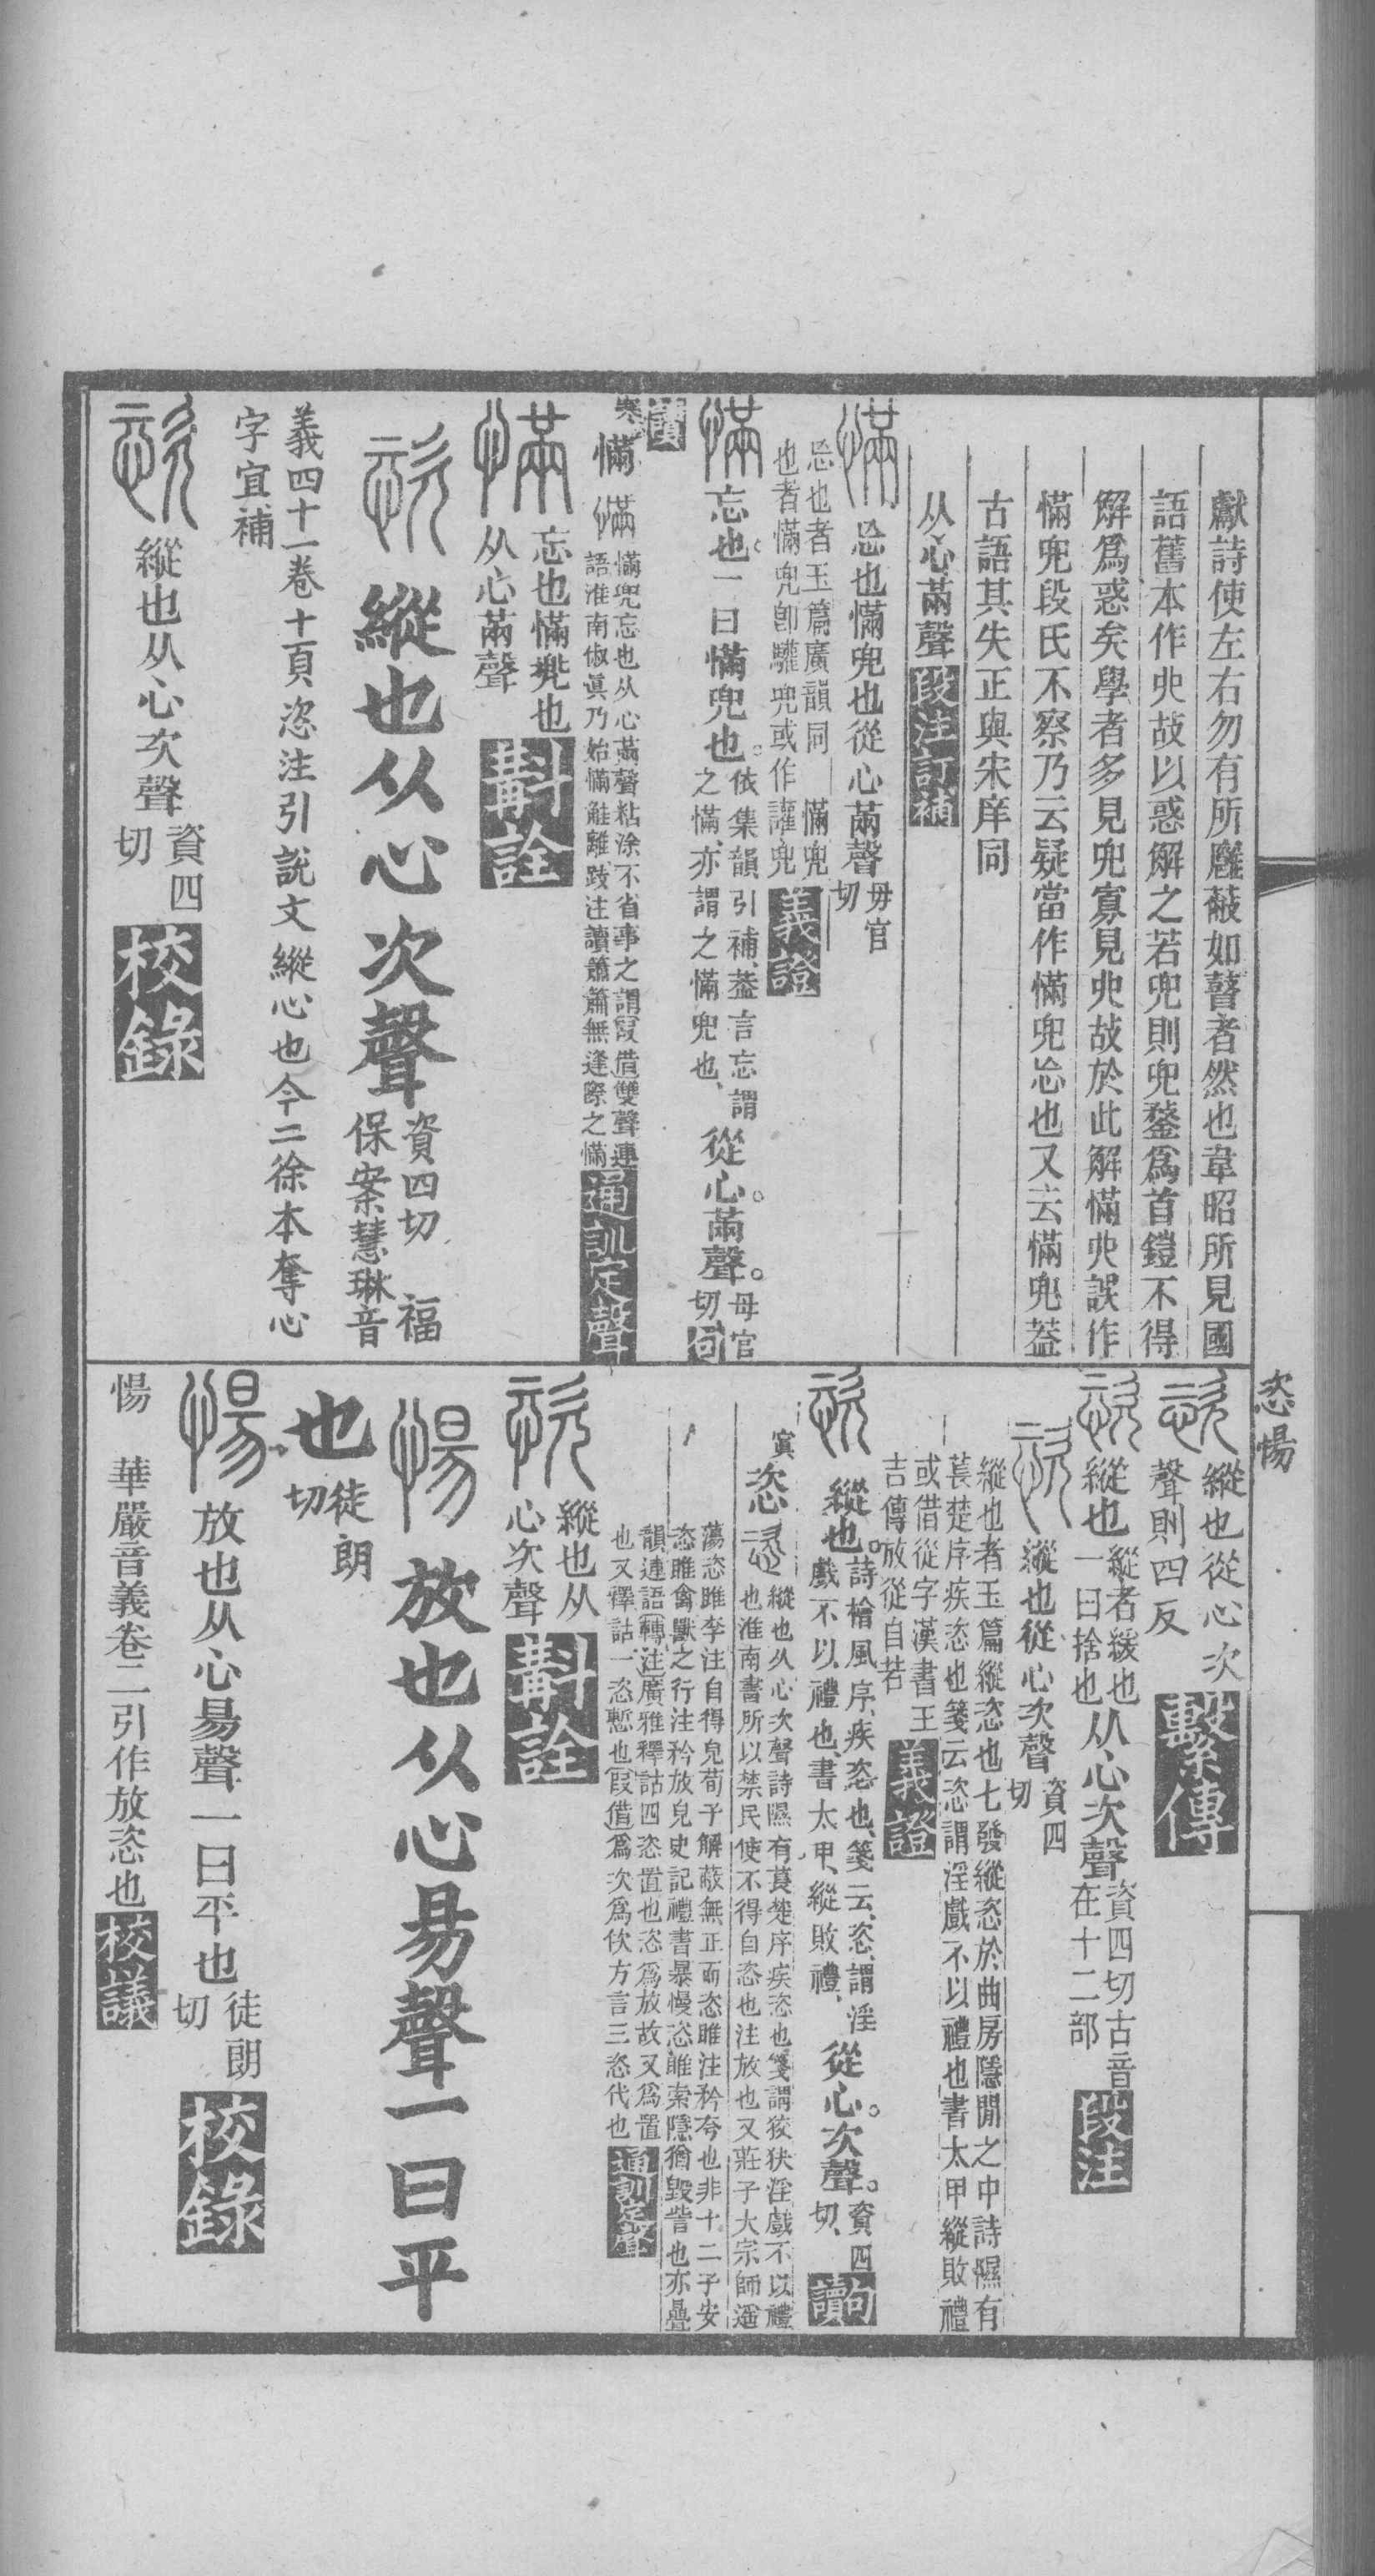 獻詩使左右勿有所廱蔽如瞽者然也韋昭所見國
語舊本作𠑹故以惑解之若兜則兜鍪爲首鎧不得
解爲惑矣學者多見兜寡見𠑹故於此解㒼𠑹誤作
慲兜段氏不察乃云疑當作慲兜忘也又云慲兜蓋
古語其失正與宋庠同
从心㒼聲段注訂補
慲忘也慲兜也從心㒼聲毋官
切
忘也者玉篇廣韻同 慲兜
也者慲兜卽驩兜或作讙兜義證
慲忘也。一曰慲兜也。依集韻引補、蓋言忘謂
之慲、亦謂之慲兜也、從心。㒼聲。母官
切句
讀
寒慲 慲兜忘也从心㒼聲粘涂不省事之謂叚借雙聲連
語淮南俶眞乃始慲觟離跂注讀蕭簫無逢際之慲通訓定聲
慲忘也慲兜也
从心㒼聲斠詮
恣縱也从心次聲資四切 福
保案慧琳音
義四十一卷十頁恣注引說文縱心也今二徐本奪心
字宜補
恣縱也从心次聲資四
切校錄
恣惕
恣縱也從心次
聲則四反繫傳
恣縱也縱者緩也
一曰捨也从心次聲資四切古音
在十二部段注
恣縱也從心次聲資四
切
縱也者玉篇縱恣也七發縱恣於曲房隱閒之中詩隰有
萇楚序疾恣也箋云恣謂淫戲不以禮也書太甲縱敗禮
或借從字漢書王
吉傳放從自若義證
恣縱也。詩檜風序、疾恣也、箋云、恣、謂淫
戲不以禮也、書太甲、縱敗禮、從心。次聲。資四
切、句讀
寅恣 縱也从心次聲詩隰有萇楚序疾恣也箋謂狡狭淫戲不以禮
也淮南書所以禁民使不得自恣也注放也又莊子大宗師遥
蕩恣睢李注自得皃荀子解蔽無正而恣睢注矜夸也非十二子安
恣睢禽獸之行注矜放皃史記禮書暴慢恣睢索隱猶毀訾也亦疊
韻連語轉注廣雅釋詁四恣置也恣爲放故又爲置
也又釋詁一恣慙也叚借爲次爲佽方言三恣代也通訓定聲
恣縱也从
心次聲斠詮
愓放也从心昜聲一曰平
也徒朗
切
愓放也从心昜聲一曰平也徒朗
切校錄
愓 華嚴音義卷二引作放恣也校議